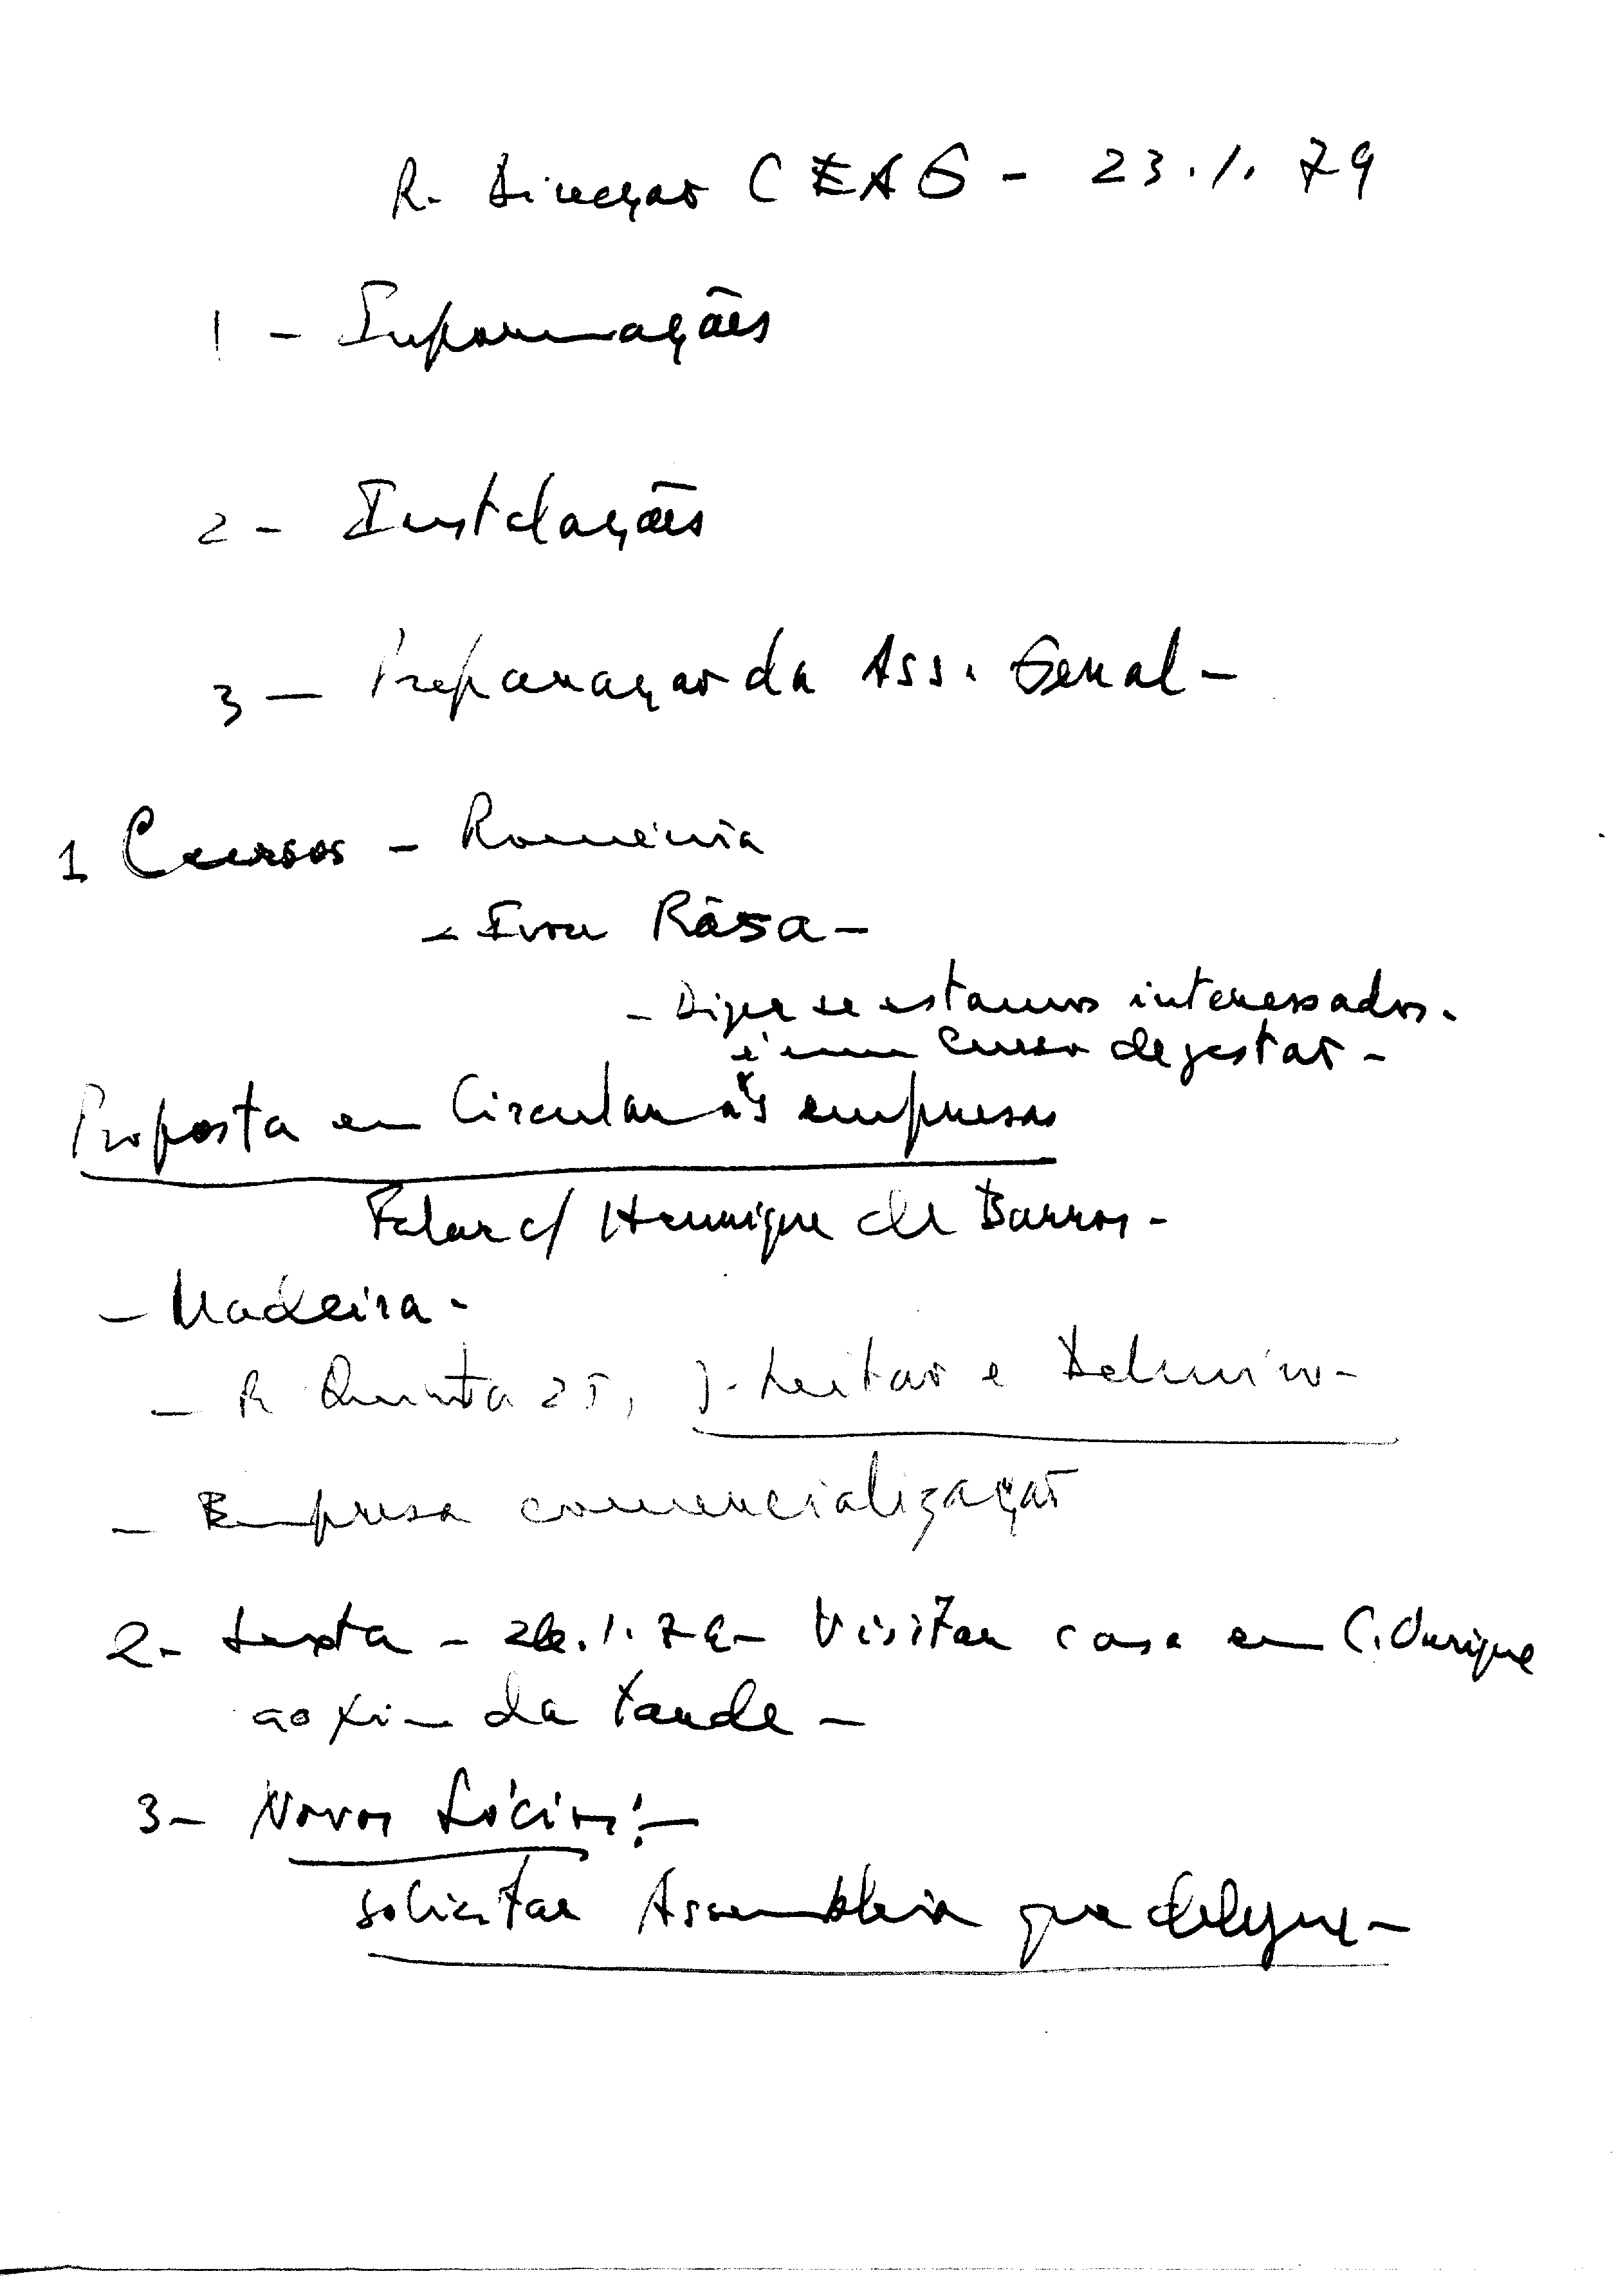 R. Direcção CEAG - 23.1.79
1 - Informações
2 - Instalações
3 - Preparação da Ass. Geral -
1 Cursos - Roménia
- Rása -
- Dizer se estamos interessados.
é um curso de gestão -
Proposta em Circular às empresas
Falar c/ Henrique de Barros -
- Madeira -
- R Quinta 25, J. Leitão e
- Empresa comercialização
2- Sexta - 26.1.79 - Visitar casa em C. Ourique
ao fim da tarde -
3- Novos Sócios: -
solicitar Assembleia que delegue -